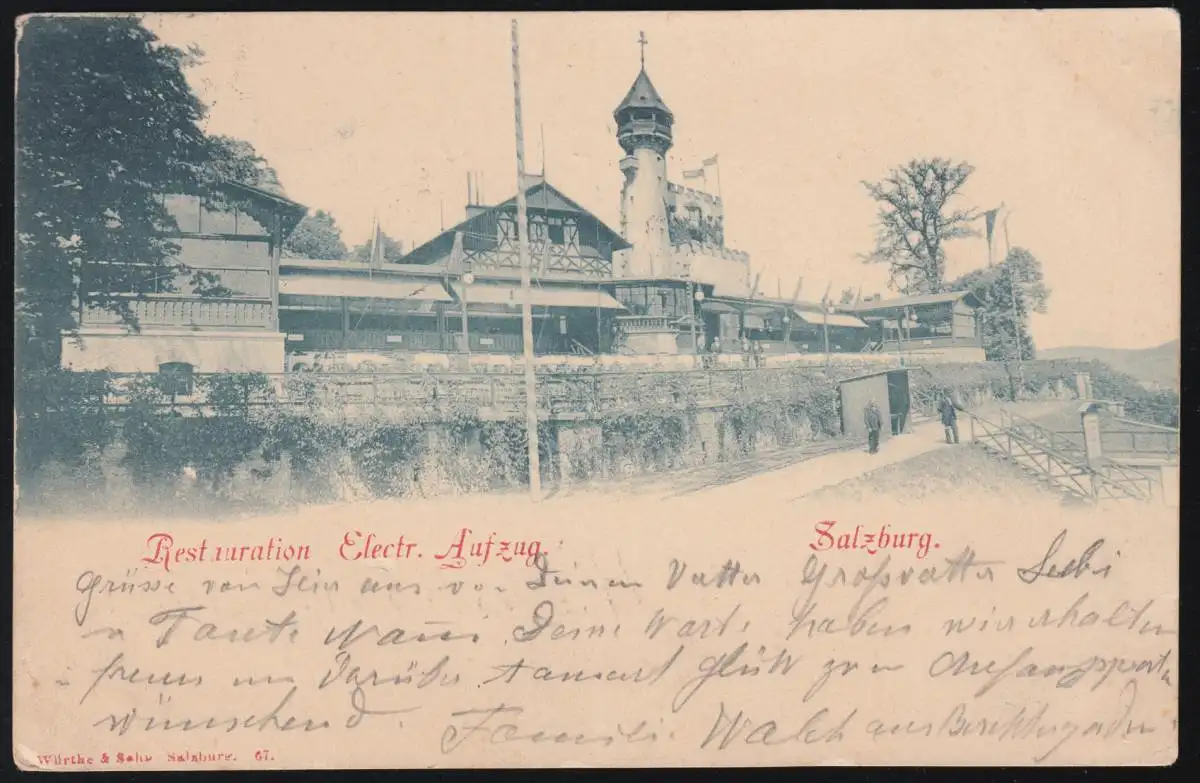 Restauration Electr. Aufzug. Salzburg.
Grüsse von Hier aus von Deinen Vatter Großvatter
Tante Deine Karte haben wir erhalten
freuen uns Darüber Glük zum
wünschend. Famili Walch aus Berchtesgaden
Würthe & Sohn Salzburg. 67.